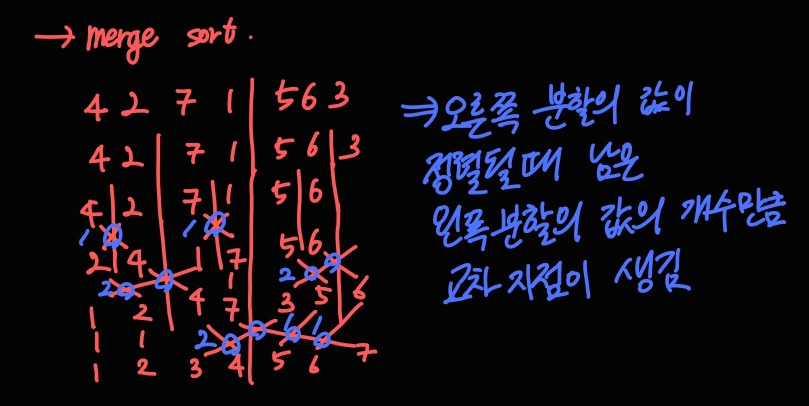 → merge sort.
4 2 7 1 5 6 3
4 2 7 1 5 6 3
4 2 7 1 5 6
1 1 5 6
2 4 1 7 2
2 4 7 3 5 6
1 2 1
1 1 2 1 1
1 2 3 4 5 6 7
⇒ 오른쪽 분할의 값이
정렬될 때 남은
왼쪽 분할의 값의 개수만큼
교차 지점이 생김